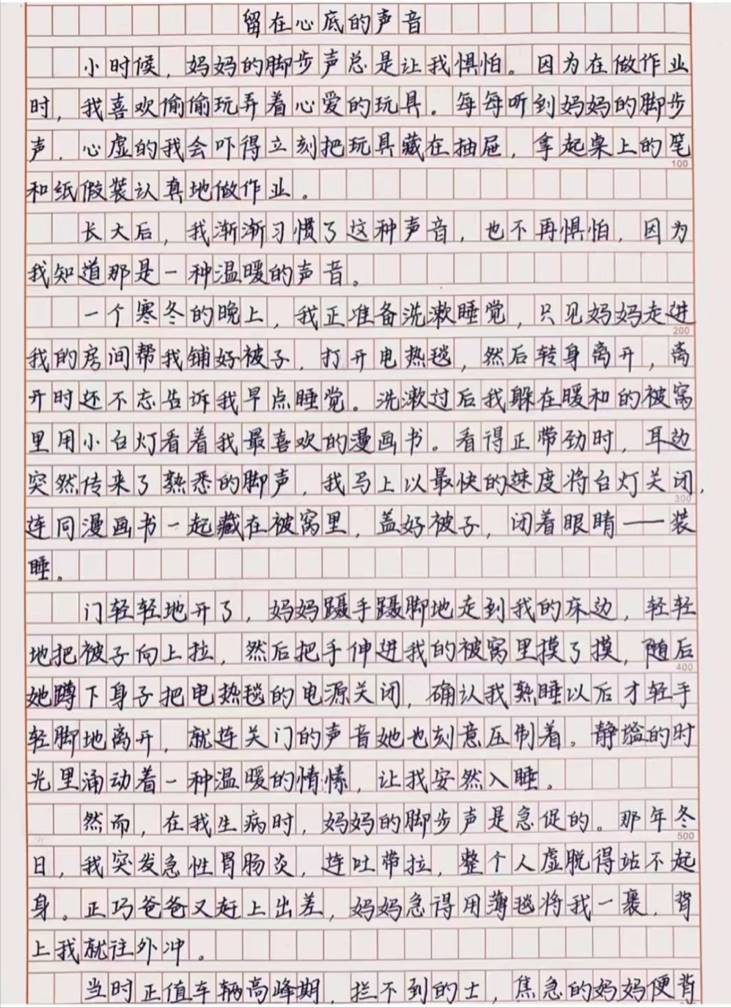 留在心底的声音
小时候，妈妈的脚步声总是让我惧怕。因为在做作业
时，我喜欢偷偷玩弄着心爱的玩具。每每听到妈妈的脚步
声，心虚的我会吓得立刻把玩具藏在抽屉，拿起桌上的笔
100
和纸假装认真地做作业。
长大后，我渐渐习惯了这种声音，也不再惧怕，因为
我知道那是一种温暖的声音。
一个寒冬的晚上，我正准备洗漱睡觉，只见妈妈走进
200
我的房间帮我铺好被子，打开电热毯，然后转身离开，离
开时还不忘告诉我早点睡觉。洗漱过后我躲在暖和的被窝
里用小台灯看着我最喜欢的漫画书。看得正带劲时，耳边
突然传来了熟悉的脚声，我马上以最快的速度将台灯关闭，
300
连同漫画书一起藏在被窝里，盖好被子，闭着眼睛——装
睡。
门轻轻地开了，妈妈蹑手蹑脚地走到我的床边，轻轻
地把被子向上拉，然后把手伸进我的被窝里摸了摸，随后
400
她蹲下身子把电热毯的电源关闭，确认我熟睡以后才轻手
轻脚地离开，就连关门的声音她也刻意压制着。静谧的时
光里涌动着一种温暖的情愫，让我安然入睡。
然而，在我生病时，妈妈的脚步声是急促的。那年冬
500
日，我突发急性胃肠炎，连吐带拉，整个人虚脱得站不起
身。正巧爸爸又赶上出差，妈妈急得用薄毯将我一裹，背
上我就往外冲。
当时正值车辆高峰期，拦不到的士，焦急的妈妈便背